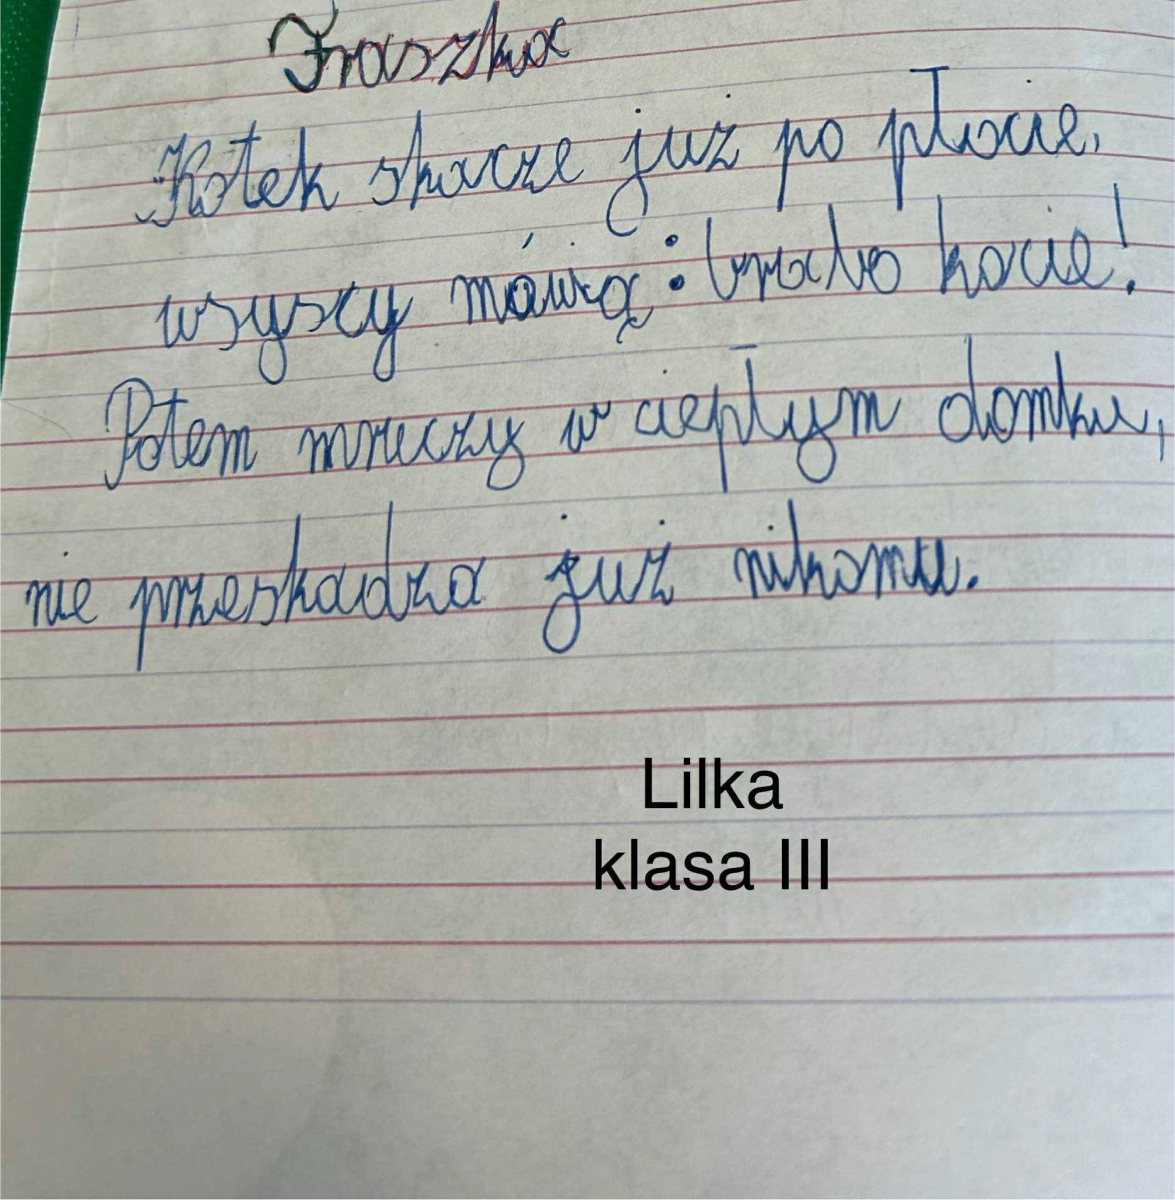 Fraszka
Kotek skacze już po płocie,
wszyscy mówią: brawo kocie!
Potem mruczy w ciepłym domku,
nie przeskadza już nikomu.
Lilka
klasa III